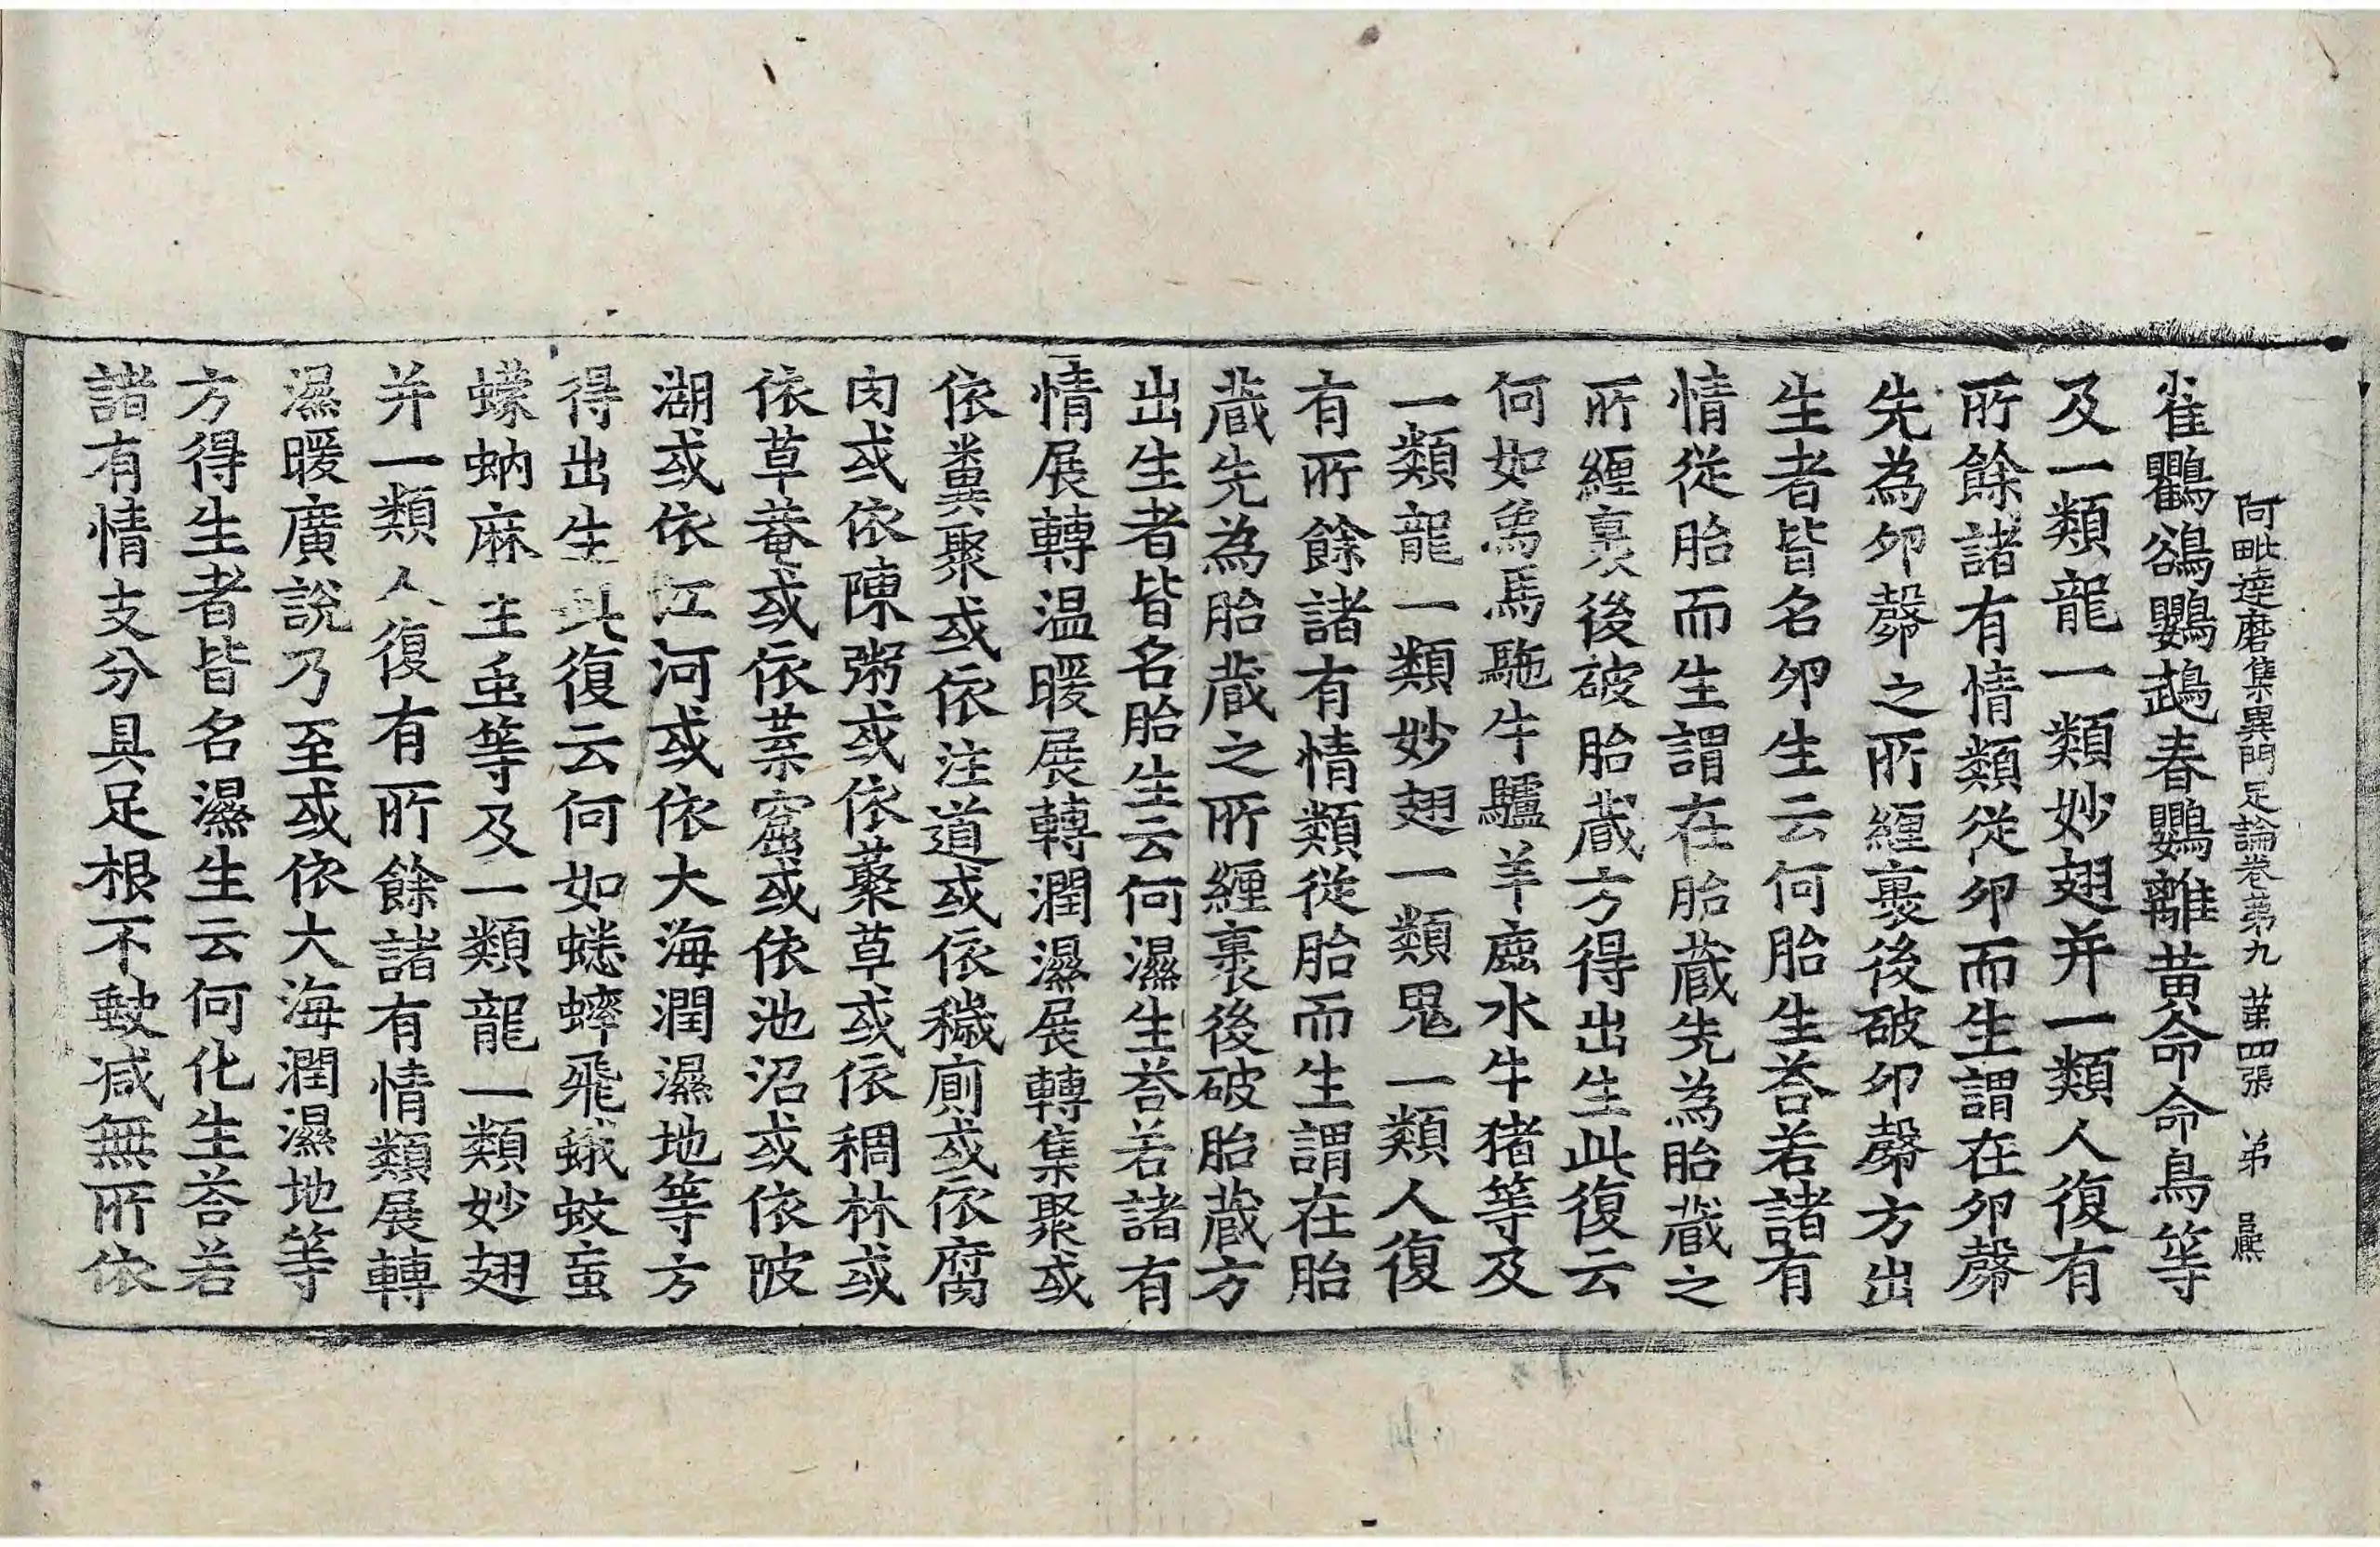 阿毗達磨集異門足論卷第九 第四張 弟
雀鸜鵒鸚鵡春鸚離黃命命鳥等
及一類龍一類妙翅并一類人復有
所餘諸有情類從卵而生謂在卵㲉
先為卵㲉之所纏裹後破卵㲉方出
生者皆名卵生云何胎生荅若諸有
情從胎而生謂在胎藏先為胎藏之
所纏裹後破胎藏方得出生此復云
何如象馬駞牛驢羊鹿水牛猪等及
一類龍一類妙翅一類鬼一類人復
有所餘諸有情類從胎而生謂在胎
藏先為胎藏之所纏裹後破胎藏方
出生者皆名胎生云何濕生荅若諸有
情展轉温暖展轉潤濕展轉集聚或
依糞聚或依注道或依穢廁或依腐
肉或依陳粥或依藂草或依稠林或
依草菴或依葉窟或依池沼或依陂
湖或依江河或依大海潤濕地等方
得出生此復云何如蟋蟀飛蛾蚊䖟
蠓蚋麻生䖝等及一類龍一類妙翅
并一類人復有所餘諸有情類展轉
濕暖廣說乃至或依大海潤濕地等
方得生者皆名濕生云何化生荅若
諸有情支分具足根不缺减無所依